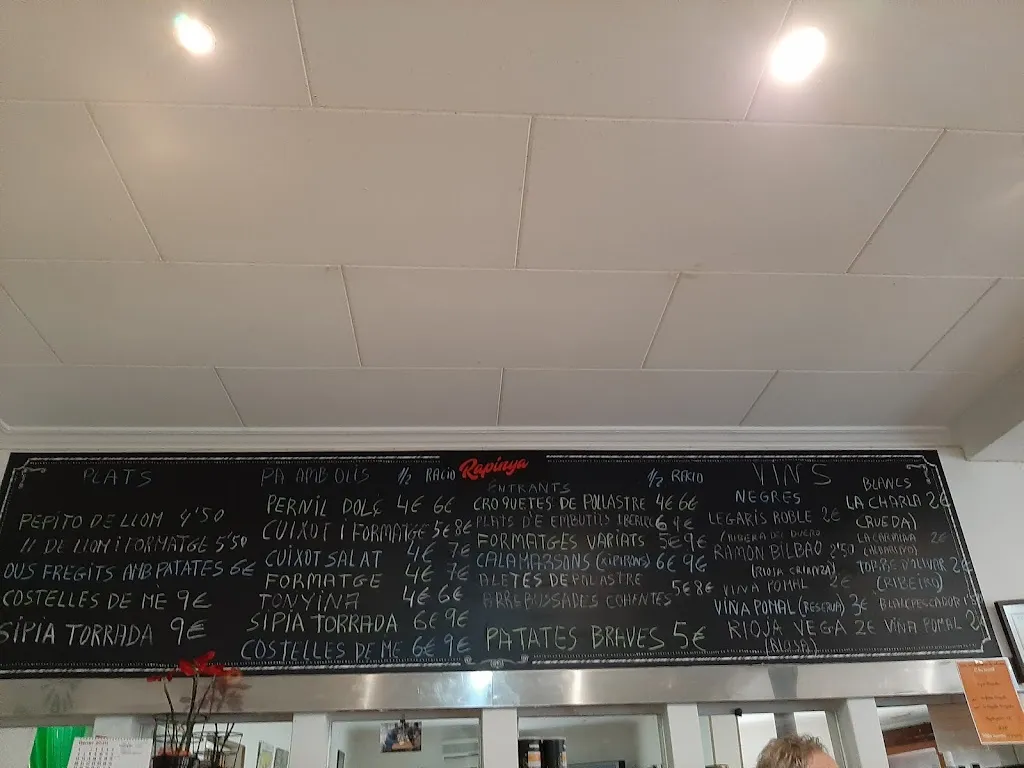 PLATS
PEPITO DE LLOM 4'50
// DE LLOM I FORMATGE 5'50
OUS FREGITS AMB PATATES 6€
COSTELLES DE ME 9€
SIPIA TORRADA 9€
PA AMB OLIS 1/2 RACIO
PERNIL DOLÇ 4€ 6€
CUIXOT I FORMATGE 5€ 8€
CUIXOT SALAT 4€ 7€
FORMATGE 4€ 7€
TONYINA 4€ 6€
SIPIA TORRADA 6€ 9€
COSTELLES DE ME 6€ 9€
Rapinya
ENTRANTS 1/2 RACIO
CROQUETES DE POLLASTRE 4€ 6€
PLATS D'E EMBUTITS IBERICS 6 9€
FORMATGES VARIATS 5€ 9€
CALAMARSONS 6€ 9€
ALETES DE POLASTRE
ARREBOSSADES COHENTES 5€ 8€
PATATES BRAVES 5€
VINS
NEGRES
LEGARIS ROBLE 2€
(RIBERA DEL DUERO
RAMON BILBAO 2'50
(RIOJA CRIANZA)
VIÑA POMAL 2€
VIÑA POMAL (RESERVA) 3€
RIOJA VEGA 2€
(RIOJA)
BLANCS
LA CHARLA 2€
(RUEDA)
2€
TORRE D'OLIVAR 2€
(RIBEIRO)
BLANC PESCADOR
VIÑA POMAL 2